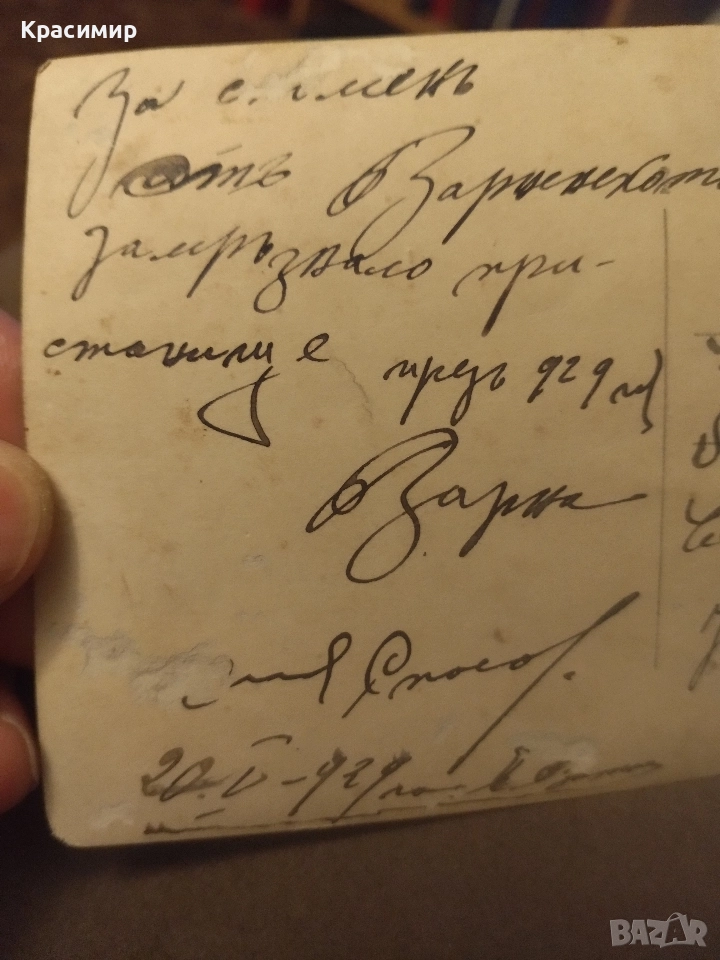 Красимир
За спомень
отъ Варненскот
замръзнало при-
станище презъ 929 г.
Варна
Спасов
20.V-929
BAZAR